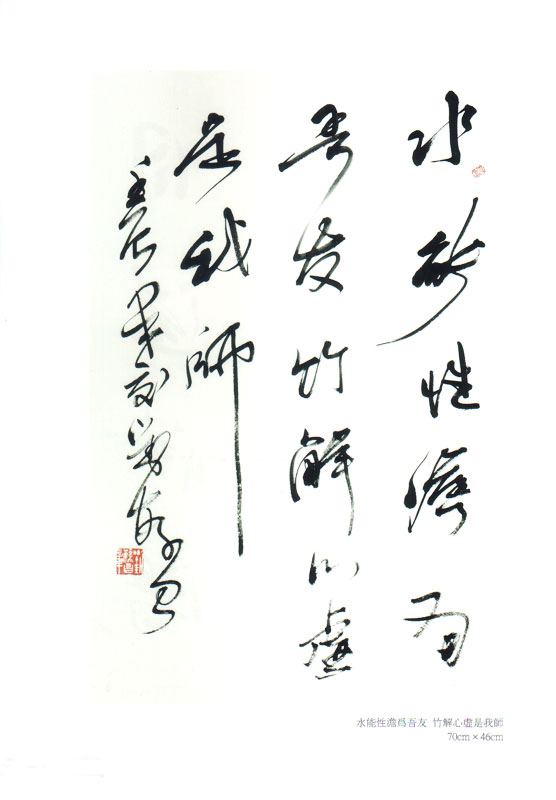 水能性澹爲
吾友竹解心虛
是我師
水能性澹爲吾友 竹解心虛是我師
70cm × 46cm